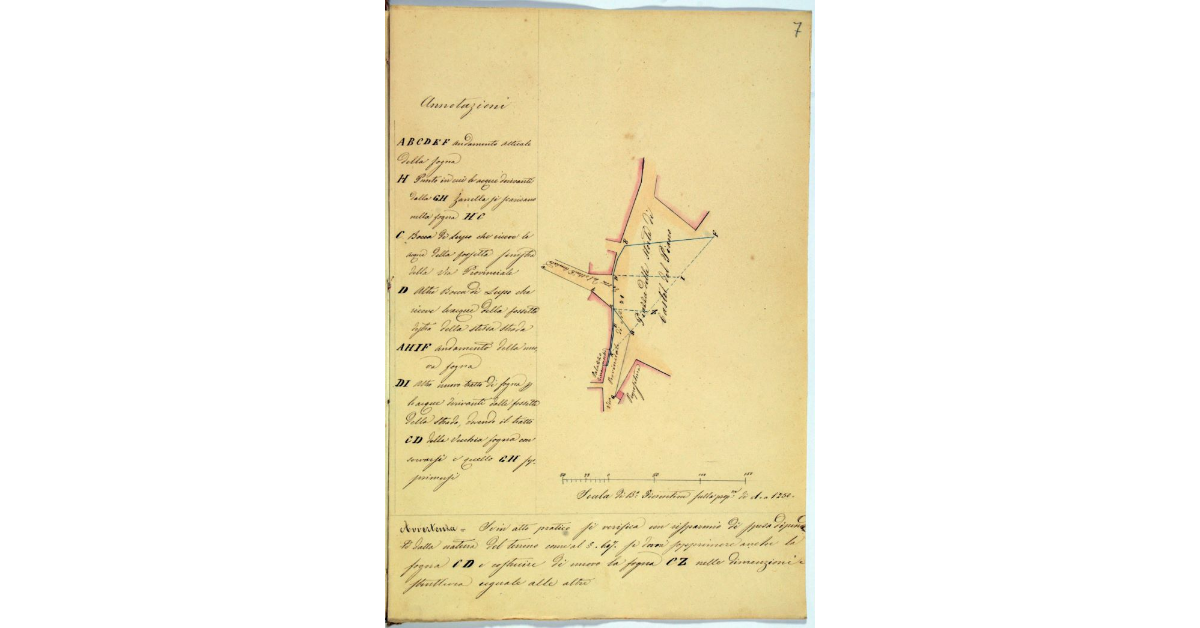 7
Annotazioni
ABCDEF andamento attuale
della fogna
H Punto in cui le acque derivanti
dalla GH Zanella si scaricano
nella fogna HC
C Bocca di Lupo che riceve le
acque della fossetta sinistra
della Via Provinciale
D Altra Bocca di Lupo che
riceve le acque della fossetta
destra della stessa strada
AHIF andamento della nuo
va fogna
DI Altro nuovo tratto di fogna
le acque derivanti dalle fossette
della strada, dovendo il tratto
CD della vecchia fogna con
servarsi e quello GH sop
primersi
Piazza delle Storte di
Castel del Piano
Via Provinciale
Scala di Bª Fiorentine sulla prop.ne di 1 a 1250.
Avvertenza = Se in atto pratico si verifica un risparmio di spesa
dalla natura del terreno come al si dovrà sopprimere anche la
fogna CD e costruire di nuovo la fogna CZ nelle dimenzioni e
struttura eguale alle altre